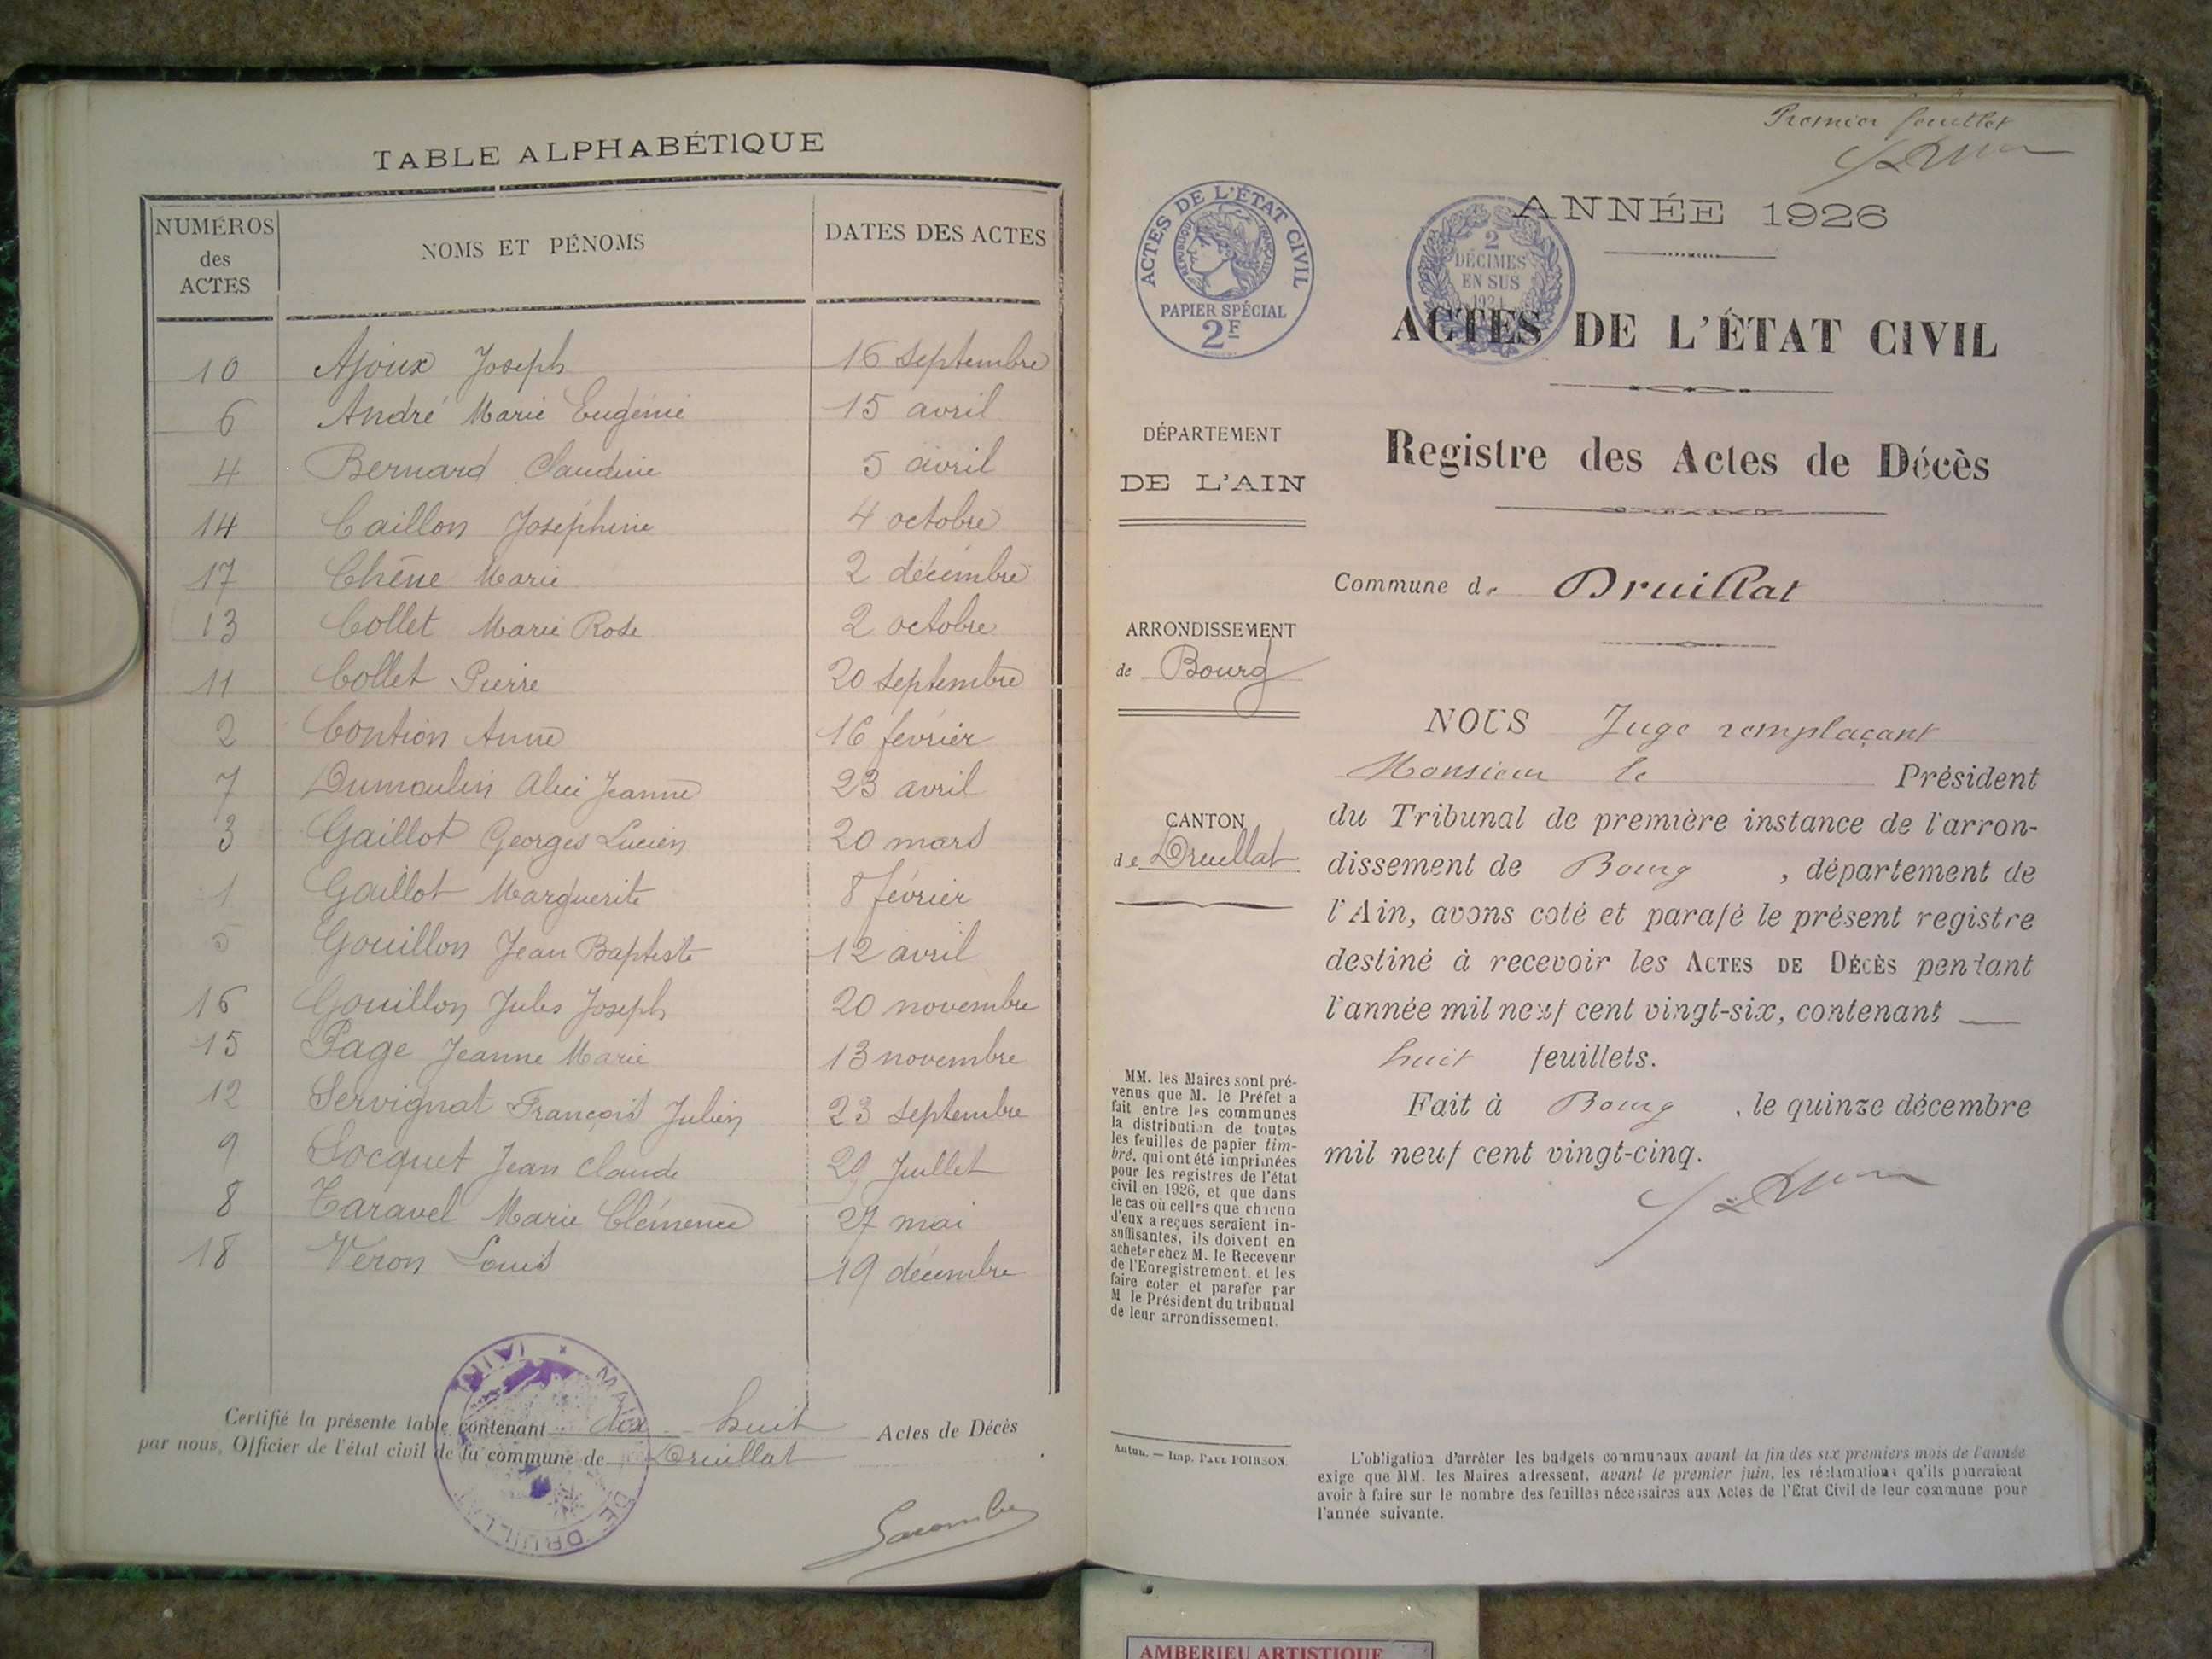 TABLE ALPHABÉTIQUE
NUMÉROS des ACTES NOMS ET PÉNOMS DATES DES ACTES
10 Ajoux Joseph 16 septembre
6 André Marie Eugénie 15 avril
4 Bernard Claudine 5 avril
14 Caillon Joséphine 4 octobre
17 Chêne Marie 2 décembre
13 Collet Marie Rose 2 octobre
11 Collet Pierre 20 septembre
2 Contion Anne 16 février
7 Dumoulin Alice Jeanne 23 avril
3 Gaillot Georges Lucien 20 mars
1 Gaillot Marguerite 8 février
5 Gouillon Jean Baptiste 12 avril
16 Gouillon Jules Joseph 20 novembre
15 Page Jeanne Marie 13 novembre
12 Servignat François Julien 23 septembre
9 Socquet Jean Claude 29 Juillet
8 Taravel Marie Clémence 27 mai
18 Veron Louis 19 décembre
Certifié la présente table contenant dix huit Actes de Décès
par nous, Officier de l'état civil de la commune de Druillat
Premier feuillet
ACTES DE L'ÉTAT CIVIL
RÉPUBLIQUE FRANÇAISE
PAPIER SPÉCIAL
2F
2
DÉCIMES
EN SUS
ANNÉE 1926
ACTES DE L'ÉTAT CIVIL
Registre des Actes de Décès
DÉPARTEMENT
DE L'AIN
Commune de Druillat
ARRONDISSEMENT
de Bourg
CANTON
de Druillat
NOUS Juge remplaçant
Monsieur le Président
du Tribunal de première instance de l'arron-
dissement de Bourg , département de
l'Ain, avons coté et parafé le présent registre
destiné à recevoir les ACTES DE DÉCÈS pendant
l'année mil neuf cent vingt-six, contenant
huit feuillets.
Fait à Bourg , le quinze décembre
mil neuf cent vingt-cinq.
MM. les Maires sont pré-
venus que M. le Préfet a
fait entre les communes
la distribution de toutes
les feuilles de papier tim-
bré, qui ont été imprimées
pour les registres de l'état
civil en 1926, et que dans
le cas où celles que chacun
d'eux a reçues seraient in-
suffisantes, ils doivent en
acheter chez M. le Receveur
de l'Enregistrement. et les
faire coter et parafer par
M le Président du tribunal
de leur arrondissement.
Autun. — Imp. PAUL POIRSON.
L'obligation d'arrêter les budgets communaux avant la fin des six premiers mois de l'année
exige que MM. les Maires adressent, avant le premier juin, les réclamations qu'ils pourraient
avoir à faire sur le nombre des feuilles nécessaires aux Actes de l'État Civil de leur commune pour
l'année suivante.
AMBERIEU ARTISTIQUE